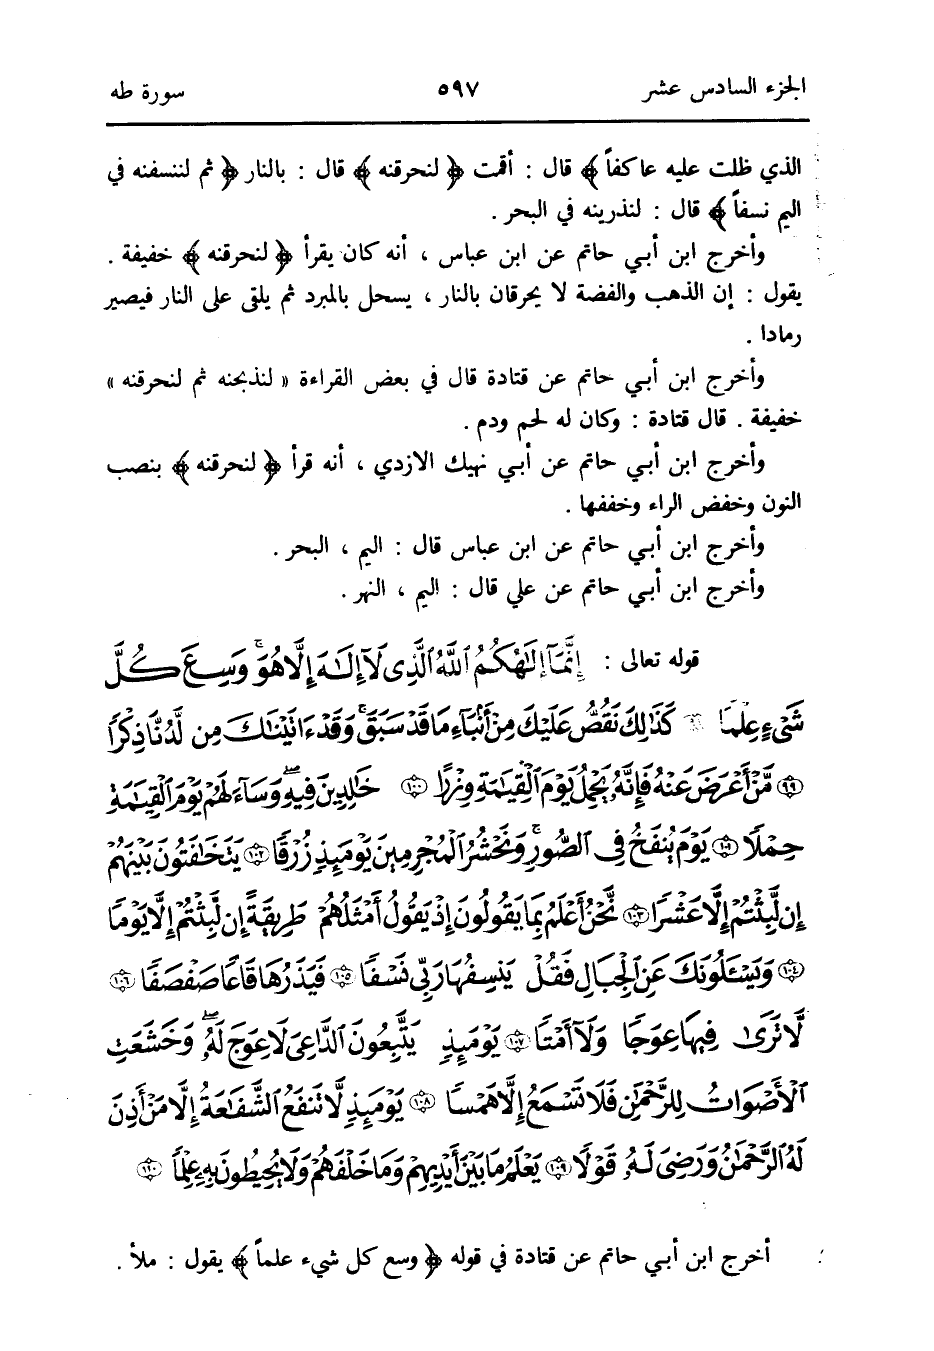 الجزء السادس عشر ٥٩٧ سورة طه
الذي ظلت عليه عاكفاً ﴾ قال : أقمت ﴿ لنحرقنه ﴾ قال : بالنار ﴿ ثم لننسفنه في
اليم نسفاً ﴾ قال : لنذرينه في البحر .
وأخرج ابن أبي حاتم عن ابن عباس ، أنه كان يقرأ ﴿ لنحرقنه ﴾ خفيفة .
يقول : إن الذهب والفضة لا يحرقان بالنار ، يسحل بالمبرد ثم يلقى على النار فيصير
رمادا .
وأخرج ابن أبي حاتم عن قتادة قال في بعض القراءة « لنذبحنه ثم لنحرقنه »
خفيفة . قال قتادة : وكان له لحم ودم .
وأخرج ابن أبي حاتم عن أبي نهيك الازدي ، أنه قرأ ﴿ لنحرقنه ﴾ بنصب
النون وخفض الراء وخففها .
وأخرج ابن أبي حاتم عن ابن عباس قال : اليم ، البحر .
وأخرج ابن أبي حاتم عن علي قال : اليم ، النهر .
قوله تعالى : إِنَّمَآ إِلَٰهُكُمُ ٱللَّهُ ٱلَّذِى لَآ إِلَٰهَ إِلَّا هُوَ ۚ وَسِعَ كُلَّ
شَىْءٍ عِلْمًا ۝ كَذَٰلِكَ نَقُصُّ عَلَيْكَ مِنْ أَنۢبَآءِ مَا قَدْ سَبَقَ ۚ وَقَدْ ءَاتَيْنَٰكَ مِن لَّدُنَّا ذِكْرًا
۝٩٩ مَّنْ أَعْرَضَ عَنْهُ فَإِنَّهُۥ يَحْمِلُ يَوْمَ ٱلْقِيَٰمَةِ وِزْرًا ۝١٠٠ خَٰلِدِينَ فِيهِ ۖ وَسَآءَ لَهُمْ يَوْمَ ٱلْقِيَٰمَةِ
حِمْلًا ۝١٠١ يَوْمَ يُنفَخُ فِى ٱلصُّورِ ۚ وَنَحْشُرُ ٱلْمُجْرِمِينَ يَوْمَئِذٍ زُرْقًا ۝١٠٢ يَتَخَٰفَتُونَ بَيْنَهُمْ
إِن لَّبِثْتُمْ إِلَّا عَشْرًا ۝١٠٣ نَّحْنُ أَعْلَمُ بِمَا يَقُولُونَ إِذْ يَقُولُ أَمْثَلُهُمْ طَرِيقَةً إِن لَّبِثْتُمْ إِلَّا يَوْمًا
۝١٠٤ وَيَسْـَٔلُونَكَ عَنِ ٱلْجِبَالِ فَقُلْ يَنسِفُهَا رَبِّى نَسْفًا ۝١٠٥ فَيَذَرُهَا قَاعًا صَفْصَفًا ۝١٠٦
لَّا تَرَىٰ فِيهَا عِوَجًا وَلَآ أَمْتًا ۝١٠٧ يَوْمَئِذٍ يَتَّبِعُونَ ٱلدَّاعِىَ لَا عِوَجَ لَهُۥ ۖ وَخَشَعَتِ
ٱلْأَصْوَاتُ لِلرَّحْمَٰنِ فَلَا تَسْمَعُ إِلَّا هَمْسًا ۝١٠٨ يَوْمَئِذٍ لَّا تَنفَعُ ٱلشَّفَٰعَةُ إِلَّا مَنْ أَذِنَ
لَهُ ٱلرَّحْمَٰنُ وَرَضِىَ لَهُۥ قَوْلًا ۝١٠٩ يَعْلَمُ مَا بَيْنَ أَيْدِيهِمْ وَمَا خَلْفَهُمْ وَلَا يُحِيطُونَ بِهِۦ عِلْمًا ۝١١٠
أخرج ابن أبي حاتم عن قتادة في قوله ﴿ وسع كل شيء علماً ﴾ يقول : ملأ .